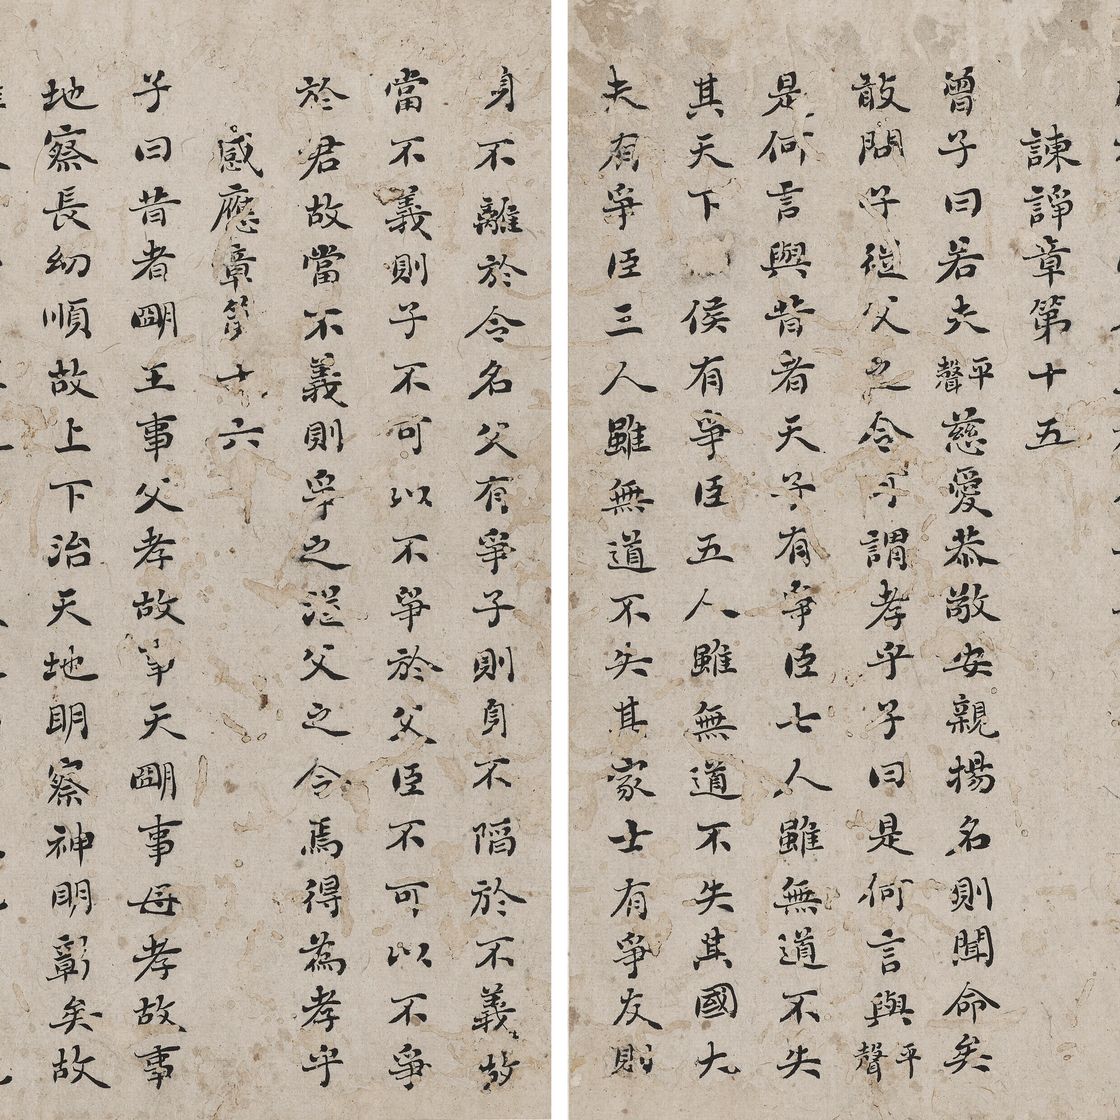 諫諍章第十五
曾子曰若夫平聲慈愛恭敬安親揚名則聞命矣
敢問子從父之令可謂孝乎子曰是何言與平聲
是何言與昔者天子有爭臣七人雖無道不失
其天下侯有爭臣五人雖無道不失其國大
夫有爭臣三人雖無道不失其家士有爭友則
身不離於令名父有爭子則身不陷於不義故
當不義則子不可以不爭於父臣不可以不爭
於君故當不義則爭之從父之令焉得為孝乎
感應章第十六
子曰昔者明王事父孝故事天明事母孝故事
地察長幼順故上下治天地明察神明彰矣故